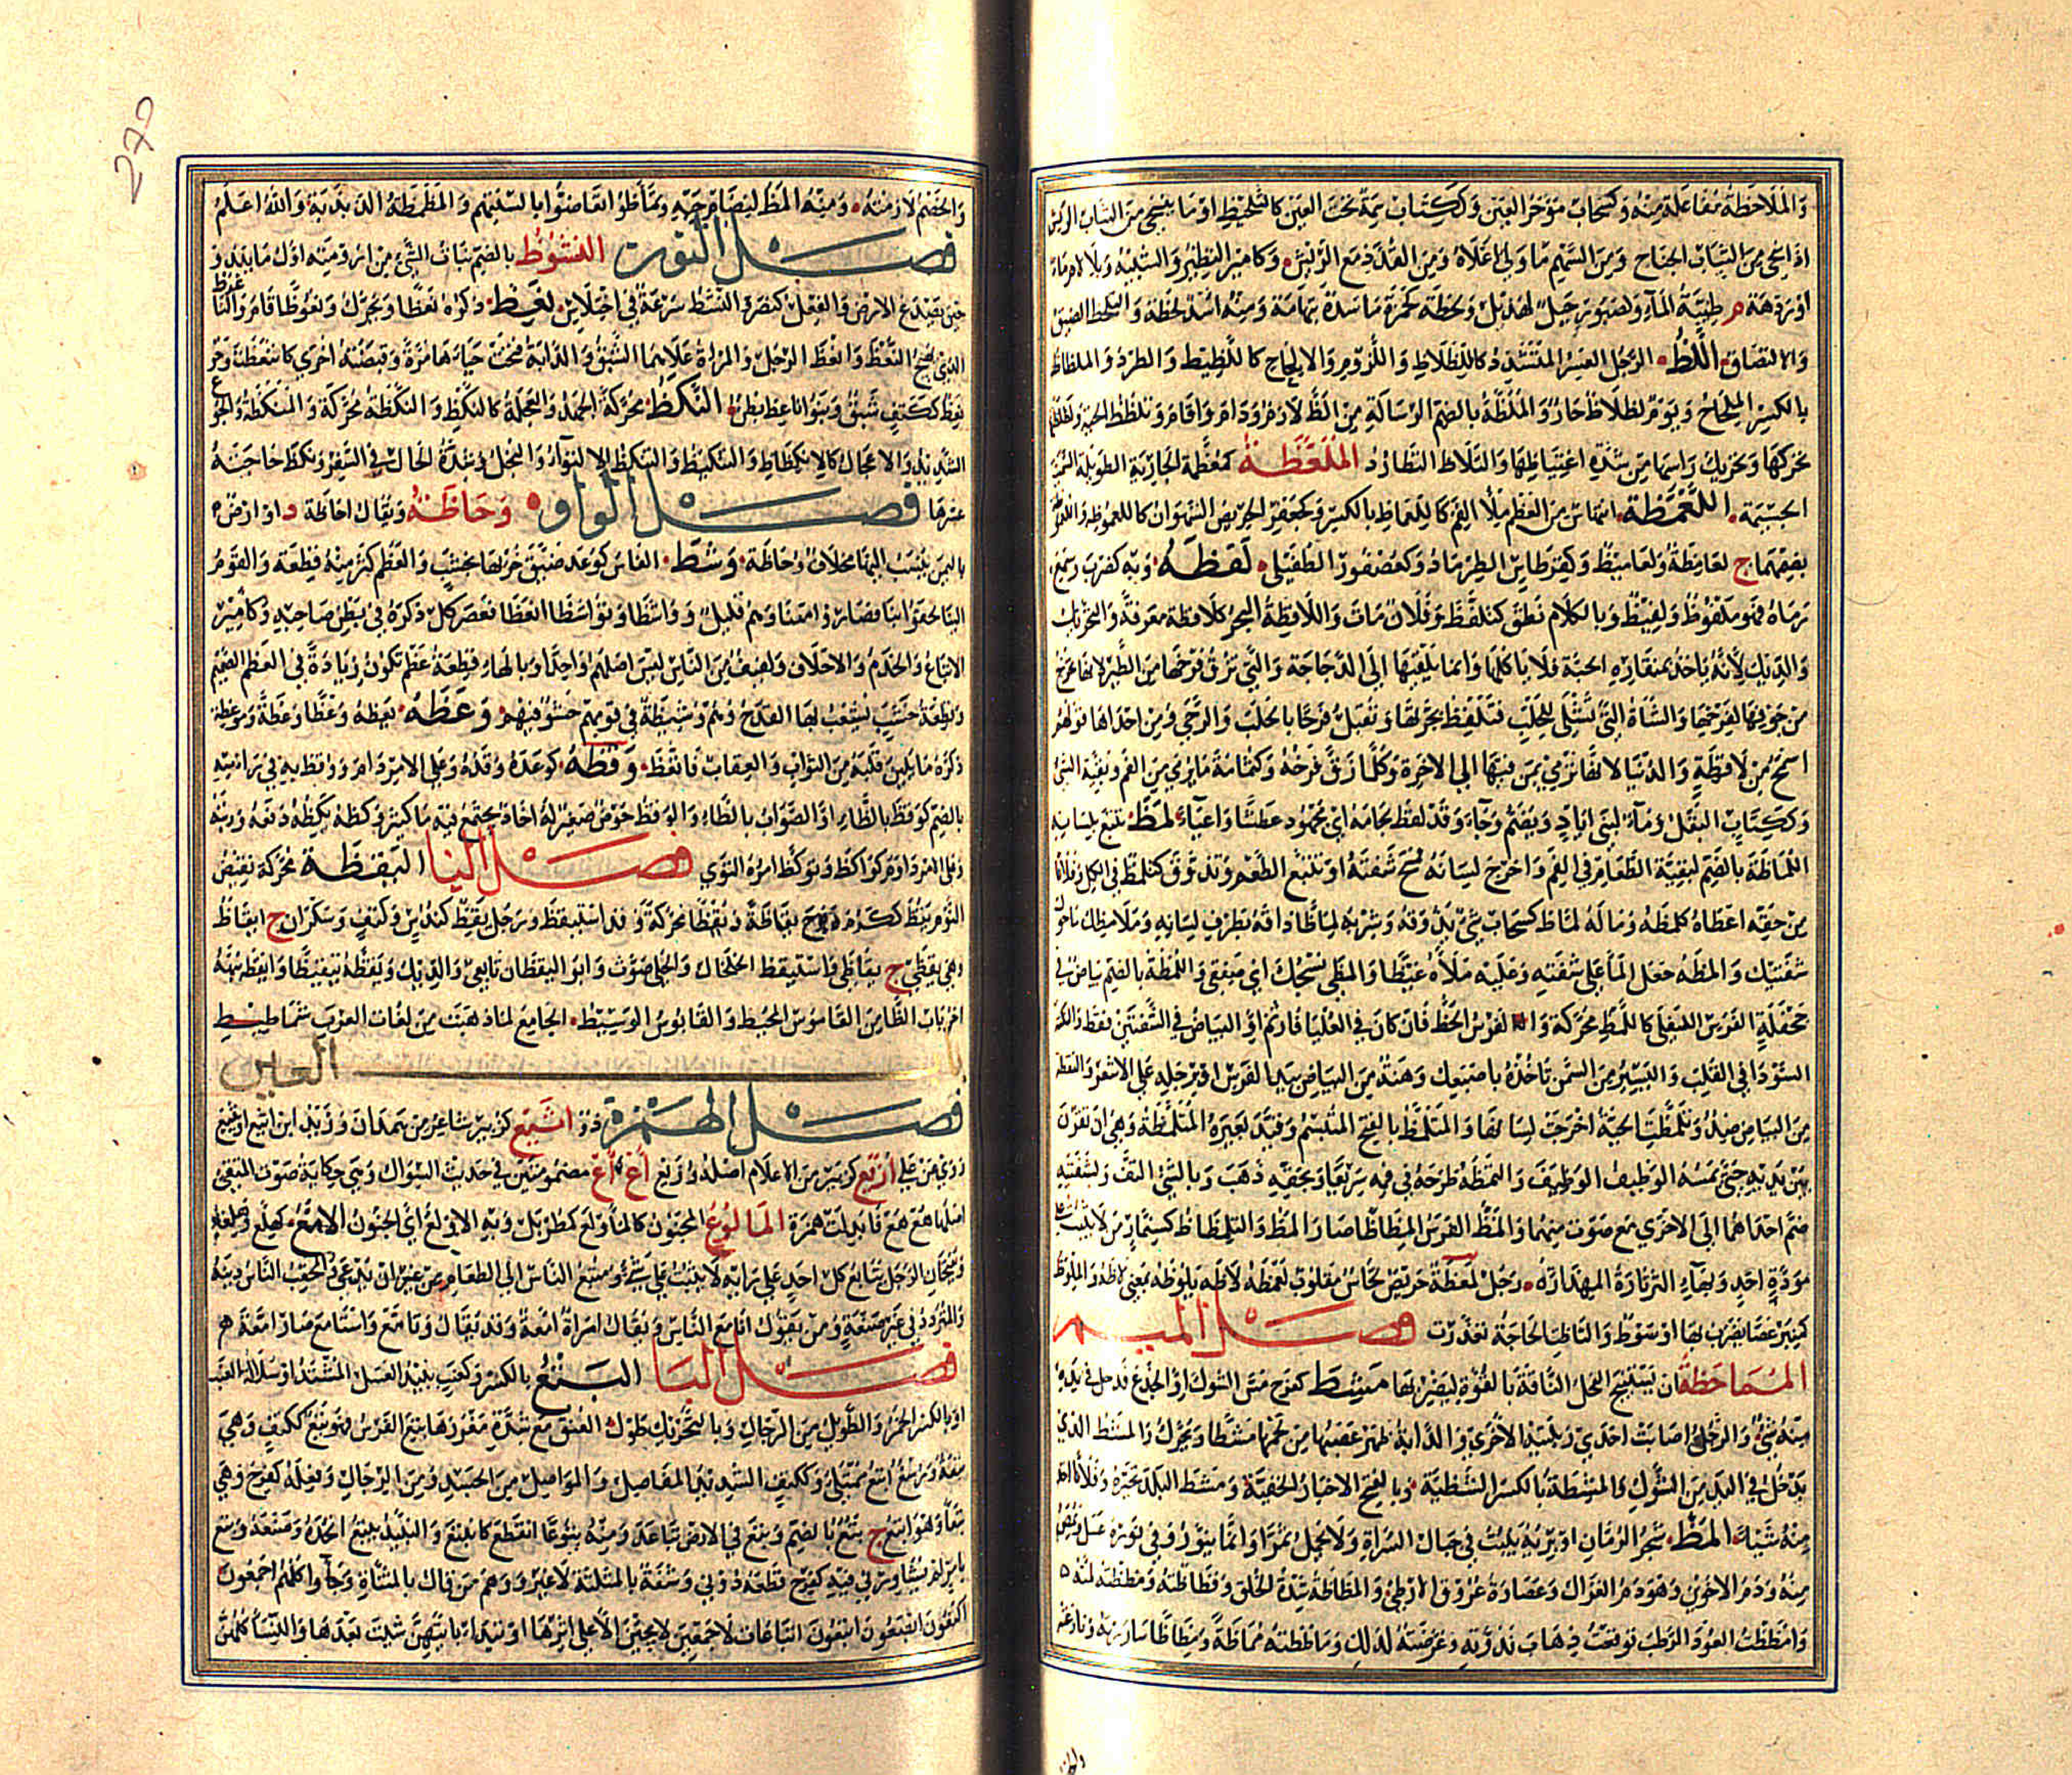 والملاحظة مفاعلة منه وكسحاب مؤخر العين وككتاب سمة تحت العين كالتلحيظ او ما ينسحي من الريش
اذا سحي من الجناح ومن السهم ما ولي اعلاه من القذذ مع الريش وكامير النظير والشبيه وبلا لام ماء
او ردهة م طيبة الماء وكصبور جبل لهذيل ولحظة كحمزة مأسدة بتهامة ومنه اسد لحظة والتلحظ الضيق
والالتصاق اللظ الرجل العسر المتشدد كاللظلاظ واللزوم والالحاح كاللظيظ والطرد والملظاظ
بالكسر الملحاح ويوم لظلاظ حار والملظة بالضم الرسالة من الظ لازم ودام واقام وتلظلظ الحية ولظلظتها
تحركها وتحريك راسها من شدة اغتياظها والتلاظ التطارد الملعظة كمعظمة الجارية الطويلة السمينة
الجسيمة اللعمظة انتهاس من العظم ملأ الفم كاللعماظ بالكسر وكجعفر الحريص الشهوان كاللعموظ واللعموظة
بضمهما ج لعامظة ولعاميظ وكقرطاس الطرماذ وكعصفور الطفيلي لفظه وبه كضرب وسمع
رماه فهو ملفوظ ولفيظ وبالكلام نطق كتلفظ وفلان مات واللافظة البحر كلافظة معرفة
والديك لانه ياخذ بمنقاره الحبة فلا ياكلها وانما يلقيها الى الدجاجة والتي تزق فرخها من الطير لانها تخرج
من جوفها لفرخها والشاة التي تشلى للحلب فتلفظ بجرتها وتقبل فرحا بالحلب والرحى ومن احداها قولهم
اسمح من لافظة والدنيا لانها ترمي بمن فيها الى الاخرة وكل ما زق فرخه وكثمامة ما يرمى من الفم وبقية الشئ
وككتاب البقل وماء لبني اياد ويضم وجاء وقد لفظ لجامه اي مجهود عطشا واعياء لمظ تتبع بلسانه
اللماظة بالضم لبقية الطعام في الفم واخرج لسانه فمسح شفته او تتبع الطعم وتذوق كتلمظ في الكل وفلانا
من حقه اعطاه كلمظه وما له لماظ كسحاب شئ يذوقه وشربه لماظا ذاقه بطرف لسانه وملامظك ما حول
شفتيك والمظه جعل الماء على شفته وعليه ملأه غيظا واللمظة بالضم بياض في
جحفلة الفرس السفلى كاللمظ محركة والفرس المظ فان كان في العليا فارثم او البياض في الشفتين فقط والنكتة
السوداء في القلب واليسير من السمن تاخذه باصبعك وهنة من البياض بيد الفرس او برجله على الاشعر والنقطة
من البياض ضد وتلمظت الحية اخرجت لسانها والمتلمظ بالفتح المتبسم وقيد بعيره المتلمظة وهي ان تقرن
بين يديه حتى يمس الوظيف الوظيف والتمظه طرحه في فمه سريعا وبحقه ذهب وبالشئ التف وبشفتيه
ضم احداهما الى الاخرى مع صوت منهما والمظ الفرس المظاظا صار المظ والتلماظ كسنمار من لا يثبت على
مودة احد وبهاء الثرثارة المهذارة رجل لمعظة حريص لحاس مقلوب لعمظة لاظه يلوظه بمعنى لاظه والملوظ
كمنبر عصا يضرب بها او سوط والتاظت الحاجة تعذرت فصل الميم
المماحظة ان يستنيخ الفحل الناقة بالقوة ليضربها مشظ كفرح مس الشوك او الجذع فدخل في يده
منه شئ والرجل اصابت احدى ربلتيه الاخرى والدابة ظهر عصبها من لحمها مشظا ويحرك والمشظ الذي
يدخل في اليد من الشوك والمشظة بالكسر الشظية وبالفتح الاخبار الخفية ومشظ البلد تخيره وفلانا اخذ
منه شيئا المظ شجر الرمان او بريه ينبت في جبال السراة ولا يحمل ثمرا وانما ينور وفي نوره عسل ويمص
منه ودم الاخوين وهو دم الغزال وعصارة عروق الارطى والمظاظة شدة الخلق وفظاظته ومظظته لمته
وامظظت العود الرطب توقعت ذهاب ندوته وعرضته لذلك وماظظته مماظة ومظاظا شاررته ونازعته
والخصم لازمته ومنه الماظ لينضام جهم وتماظوا تعاضوا بالسنتهم والمظمظة الذبذبة والله اعلم
فصل النون النشوظ بالضم نبات الشئ من ارومته اول ما يبدو
حين يصدع الارض والفعل كنصر والنشظ سرعة في اختلاس نعظ ذكره نعظا ويحرك ونعوظا قام والناعوظ
الذي يهيج النعظ وانعظ الرجل والمراة علاهما الشبق والدابة فتحت حياءها مرة وقبضته اخرى كانتعظت وحر
نعظ ككتف شبق وبنو ناعظ بطن النكظ محركة الجهد والعجلة كالنكظ والنكظة محركة والمنكظة والجوع
الشديد والاعجال كالانكاظ والتنكيظ والتنكظ الالتواء والبخل وشدة الحال في السفر ونكظ حاجته
عسرها فصل الواو وحاظة ويقال احاظة د او ارض
باليمن ينسب اليها مخلاف وحاظة وشظ الفاس كوعد ضيق خرتها بخشب والعظم كسر منه قطعة والقوم
الينا لحقوا بنا فصاروا معنا وهم قليل وواشظا وتواشظا انعظا فعصر كل ذكره في بطن صاحبه وكامير
الاتباع والخدم والاحلاف ولفيف من الناس ليس اصلهم واحدا وبالهاء قطعة عظم تكون زيادة في العظم الصميم
وقطعة خشب يشعب بها القدح وهم وشيظة في قومهم حشو فيهم وعظه يعظه وعظا وعظة وموعظة
ذكره ما يلين قلبه من الثواب والعقاب فاتعظ وقظه كوعده وقذه وعلى الامر دام ووقظ به في راسه
بالضم كوقط بالطاء او الصواب بالطاء والوقظ حوض صغير له اخاذ يجتمع فيه ماء كثير وكظه يكظه دفعه وزبنه
وعلى الامر داوم كواكظ وتوكظ امره التوى فصل اليا اليقظة محركة نقيض
النوم يقظ ككرم وفرح يقاظة ويقظا محركة وقد استيقظ ورجل يقظ كندس وكتف وسكران ج ايقاظ
وهي يقظى ج يقاظى واستيقظ الخلخال والحلي صوت وابو اليقظان تابعي والديك ويقظه تيقيظا وايقظه نبهه
اخر باب الظا من القاموس المحيط والقابوس الوسيط الجامع لما ذهب من لغات العرب شماطيط
باب العين
فصل الهمزة ذو اشيع كزبير شاعر من همدان
أزيع كزبير من الاعلام اصله وزيع أع أع مضمومتين في حديث السواك وهي حكاية صوت المتقئ
اصلها هع هع فابدلت همزة المألوع المجنون كالمأولع كمطربل وبه الاولع اي الجنون الامع كهلع
ويفتحان الرجل يتابع كل احد على رايه لا يثبت على شئ ومتبع الناس الى الطعام من غير ان يدعى والمحقب الناس دينه
والمتردد في غير صنعة ومن يقول انا مع الناس ويقال امراة امعة وقد يقال وتامع واستامع صار امعة
فصل البا البتع بالكسر وكعنب نبيذ العسل المشتد او سلالة العنب
او بالكسر الخمر والطويل من الرجال وبالتحريك طول العنق مع شدة مغرزها بتع الفرس فهو بتع ككتف وهي
بتعة ورسغ ابتع ممتلئ وككتف الشديد المفاصل والمواصل من الجسد ومن الرجال وفعله كفرح وهي
بتعاء وهو ابتع ج بتع بالضم وبتع في الارض تباعد ومنه بتوعا انقطع كانبتع والنبيذ يبتعه اتخذه وصنعه
بامر لم يشاورني فيه كفرح قطعه دوني وشفة بالمثلثة لا غير ووهم من قال بالمثناة وجاؤا كلهم اجمعون
اكتعون ابصعون ابتعون اتباعات لاجمعين لا يجئن الا على اثرها او تبدا بايتهن شئت بعدها والنساء كلهن